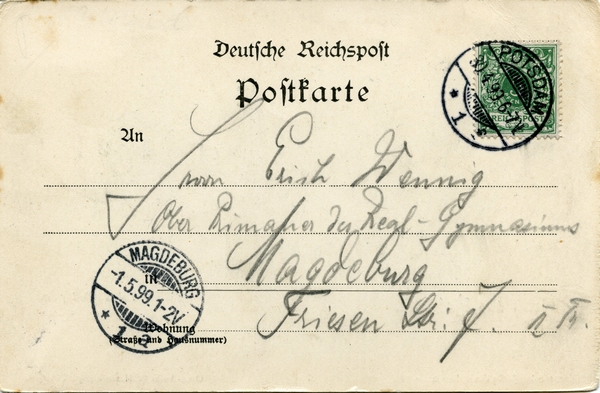 Deutsche Reichspost
Postkarte
POTSDAM
1
REICHSPOST
An
Herrn Erich Wennig
Ober Primaner des Real-Gymnasiums
in Magdeburg
Friesen Str: 7. II Tr.
MAGDEBURG
-1.5.99.1-2V
1
Wohnung
(Straße und Hausnummer)